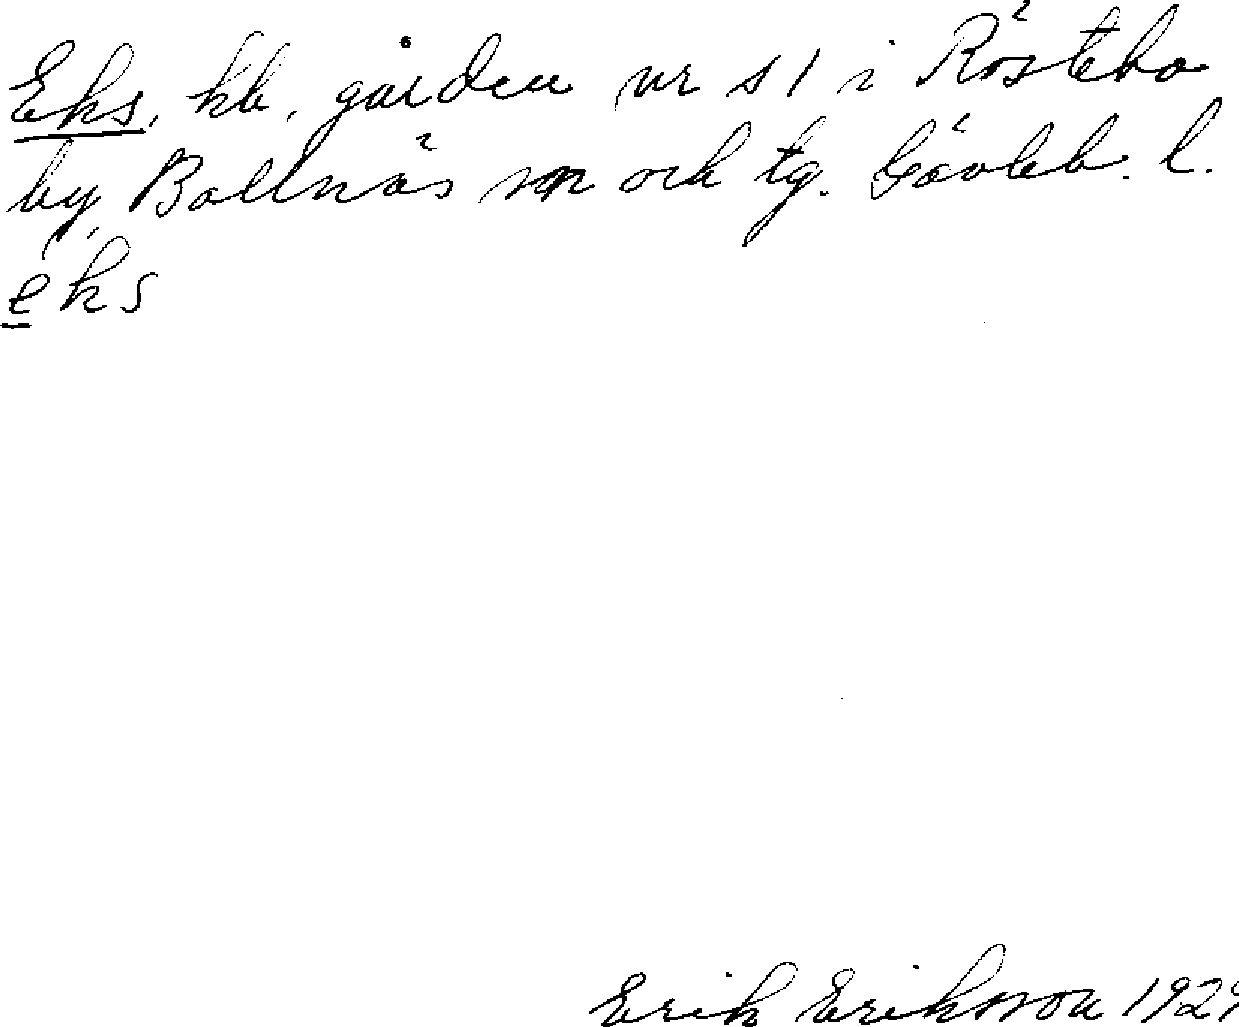 Eks, kb, gården nr s 1 i Röstebo
by, Bollnäs sn och tg. Gävleb. l.
eks
Erik Eriksson 192